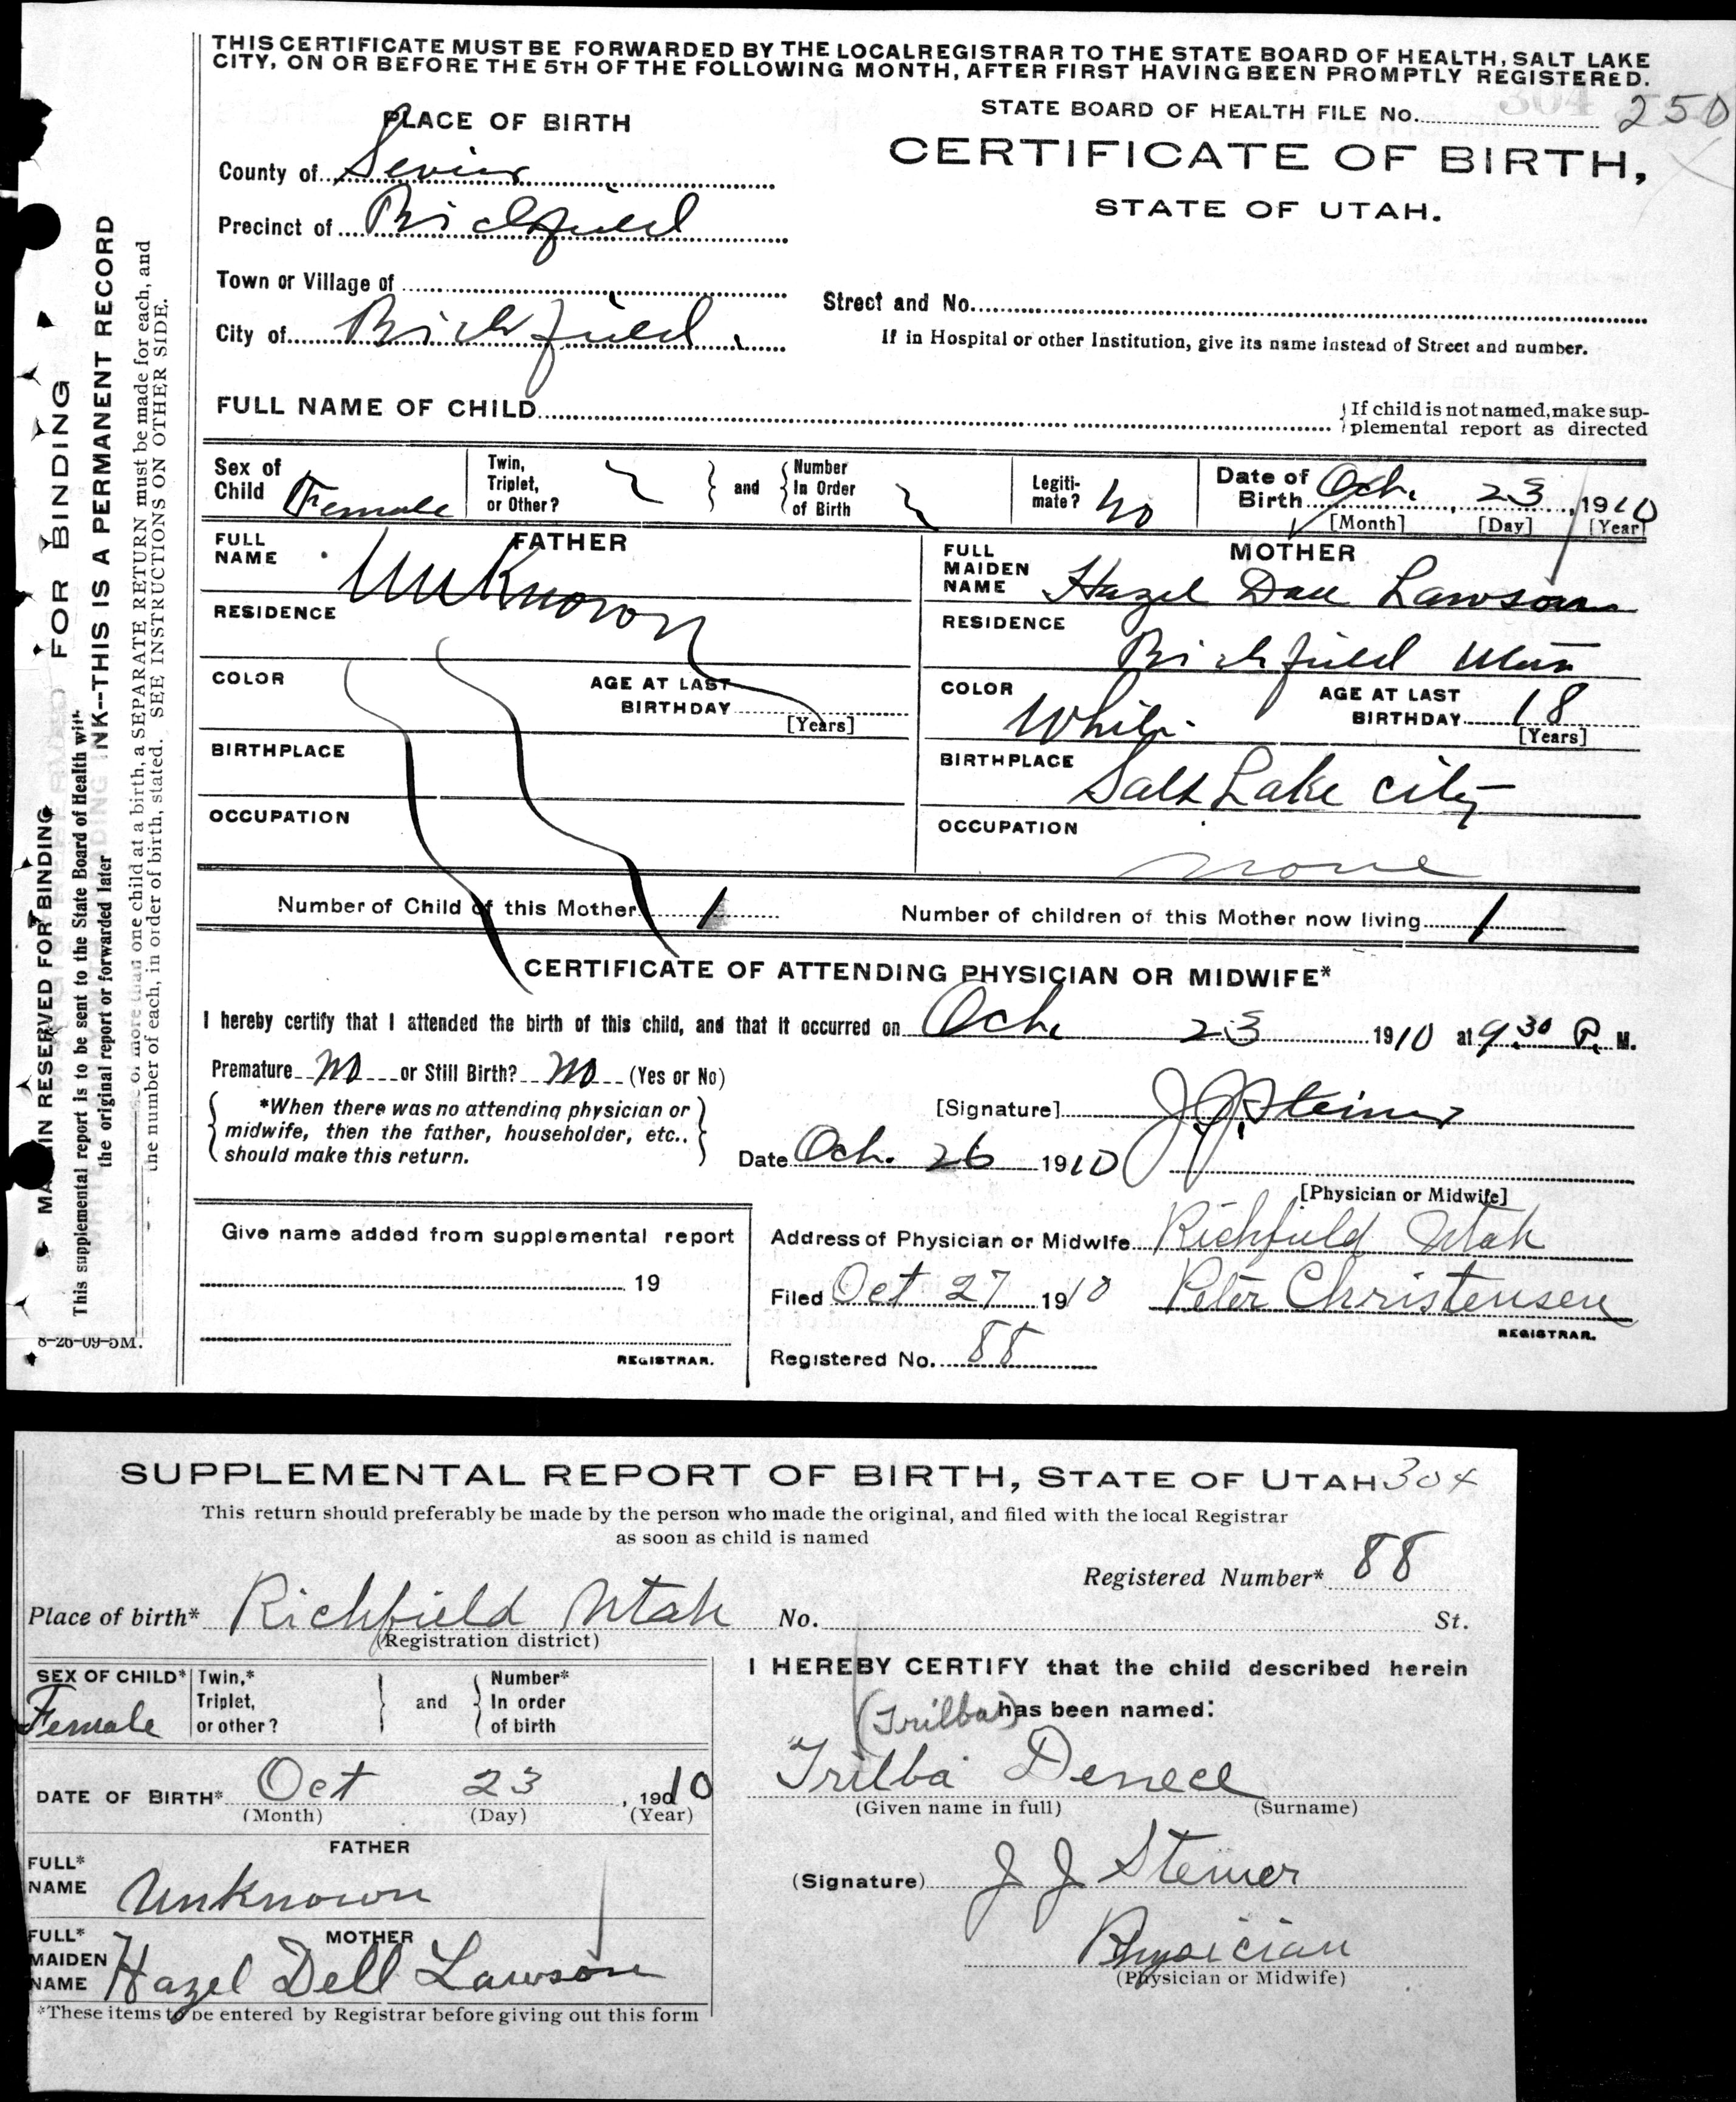 THIS CERTIFICATE MUST BE FORWARDED BY THE LOCAL REGISTRAR TO THE STATE BOARD OF HEALTH, SALT LAKE
CITY, ON OR BEFORE THE 5TH OF THE FOLLOWING MONTH, AFTER FIRST HAVING BEEN PROMPTLY REGISTERED.
STATE BOARD OF HEALTH FILE No. 304 250
PLACE OF BIRTH
CERTIFICATE OF BIRTH,
STATE OF UTAH.
County of Sevier
Precinct of Richfield
Town or Village of
Street and No.
City of Richfield
If in Hospital or other Institution, give its name instead of Street and number.
FULL NAME OF CHILD
If child is not named, make sup-
plemental report as directed
Sex of Child Female
Twin, Triplet, or Other?
and
Number In Order of Birth
Legiti-mate? No
Date of Birth Oct. 23, 1910
[Month] [Day] [Year]
FATHER
FULL NAME Unknown
RESIDENCE
COLOR
AGE AT LAST BIRTHDAY
[Years]
BIRTHPLACE
OCCUPATION
MOTHER
FULL MAIDEN NAME Hazel Dell Lawson
RESIDENCE
Richfield Utah
COLOR White
AGE AT LAST BIRTHDAY 18
[Years]
BIRTHPLACE
Salt Lake City
OCCUPATION
none
Number of Child of this Mother 1
Number of children of this Mother now living 1
CERTIFICATE OF ATTENDING PHYSICIAN OR MIDWIFE*
I hereby certify that I attended the birth of this child, and that it occurred on Oct. 23 1910 at 9.30 P. M.
Premature No or Still Birth? No (Yes or No)
*When there was no attending physician or
midwife, then the father, householder, etc..
should make this return.
[Signature] J.J. Steiner
Date Oct. 26 1910
[Physician or Midwife]
Give name added from supplemental report
19
REGISTRAR.
Address of Physician or Midwife Richfield Utah
Filed Oct 27 1910 Peter Christensen
REGISTRAR.
Registered No. 88
MARGIN RESERVED FOR BINDING
FOR BINDING
This supplemental report is to be sent to the State Board of Health with
the original report or forwarded later
INK--THIS IS A PERMANENT RECORD
of more than one child at a birth, a SEPARATE RETURN must be made for each, and
the number of each, in order of birth, stated. SEE INSTRUCTIONS ON OTHER SIDE.
8-26-09-5M.
SUPPLEMENTAL REPORT OF BIRTH, STATE OF UTAH 304
This return should preferably be made by the person who made the original, and filed with the local Registrar
as soon as child is named
Registered Number* 88
Place of birth* Richfield Utah No. St.
(Registration district)
SEX OF CHILD* Female
Twin,* Triplet, or other?
and
Number* In order of birth
DATE OF BIRTH* Oct 23, 1910
(Month) (Day) (Year)
FATHER
FULL* NAME Unknown
MOTHER
FULL* MAIDEN NAME Hazel Dell Lawson
*These items to be entered by Registrar before giving out this form
I HEREBY CERTIFY that the child described herein
(Trilba) has been named:
Trilba Denece
(Given name in full) (Surname)
(Signature) J J Steiner
Physician
(Physician or Midwife)